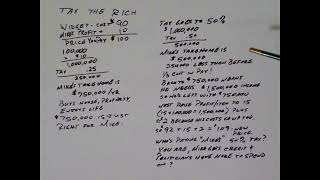 TAX THE RICH
WIDGET - COST $90
MIKES PROFIT + 10
PRICE YOU PAY $100
100,000
x $10
1,000,000
TAX .25
250,000
MIKES TAKE HOME IS
$750,000/YR
BUYS HOUSE, PROPERTY,
ENJOYS LIFE
$750,000 IS JUST
RIGHT FOR MIKE.
TAX GOES TO 50%
$1,000,000
TAX .50
500,000
MIKES TAKE HOME IS
$500,000
250,000 LESS THAN BEFORE
1/3 CUT IN PAY!
BACK TO $750,000 MEANS
HE NEEDS $1,500,000 INCOME
SO HE'S LEFT WITH 750,000
MUST RAISE PROFIT/YR TO 15
(15 x 100,000 = 1,500,000) PLUS
$2 BECAUSE HIS COSTS GO UP TOO.
SO $92 + 15 + 2 = $109 NEW
PRICE.
WHO'S PAYING "MIKES" 50% TAX?
YOU ARE, MIKE GETS CREDIT &
POLITICIANS HAVE MORE TO SPEND
ON ?